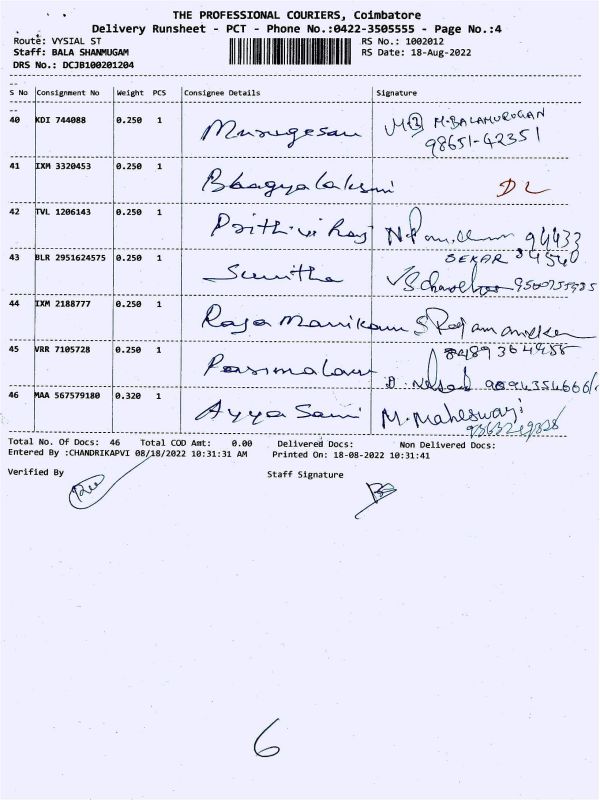 THE PROFESSIONAL COURIERS, Coimbatore
Delivery Runsheet - PCT - Phone No.:0422-3505555 - Page No.:4
Route: VYSIAL ST RS No.: 1002012
Staff: BALA SHANMUGAM RS Date: 18-Aug-2022
DRS No.: DCJB100201204
S No Consignment No Weight PCS Consignee Details Signature
40 KDI 744088 0.250 1 Murugesan M.BALAMURUGAN
98651-42351
41 IXM 3320453 0.250 1 Bhagyalakshmi DL
42 TVL 1206143 0.250 1 Prithivi Raj 94433
43 BLR 2951624575 0.250 1 Sunitha SEKAR 34540
44 IXM 2188777 0.250 1 Raja Manikam
45 VRR 7105728 0.250 1 Parimalam
46 MAA 567579180 0.320 1 Ayya Sami M. Maheswari
Total No. Of Docs: 46 Total COD Amt: 0.00 Delivered Docs: Non Delivered Docs:
Entered By :CHANDRIKAPVI 08/18/2022 10:31:31 AM Printed On: 18-08-2022 10:31:41
Verified By Staff Signature
6